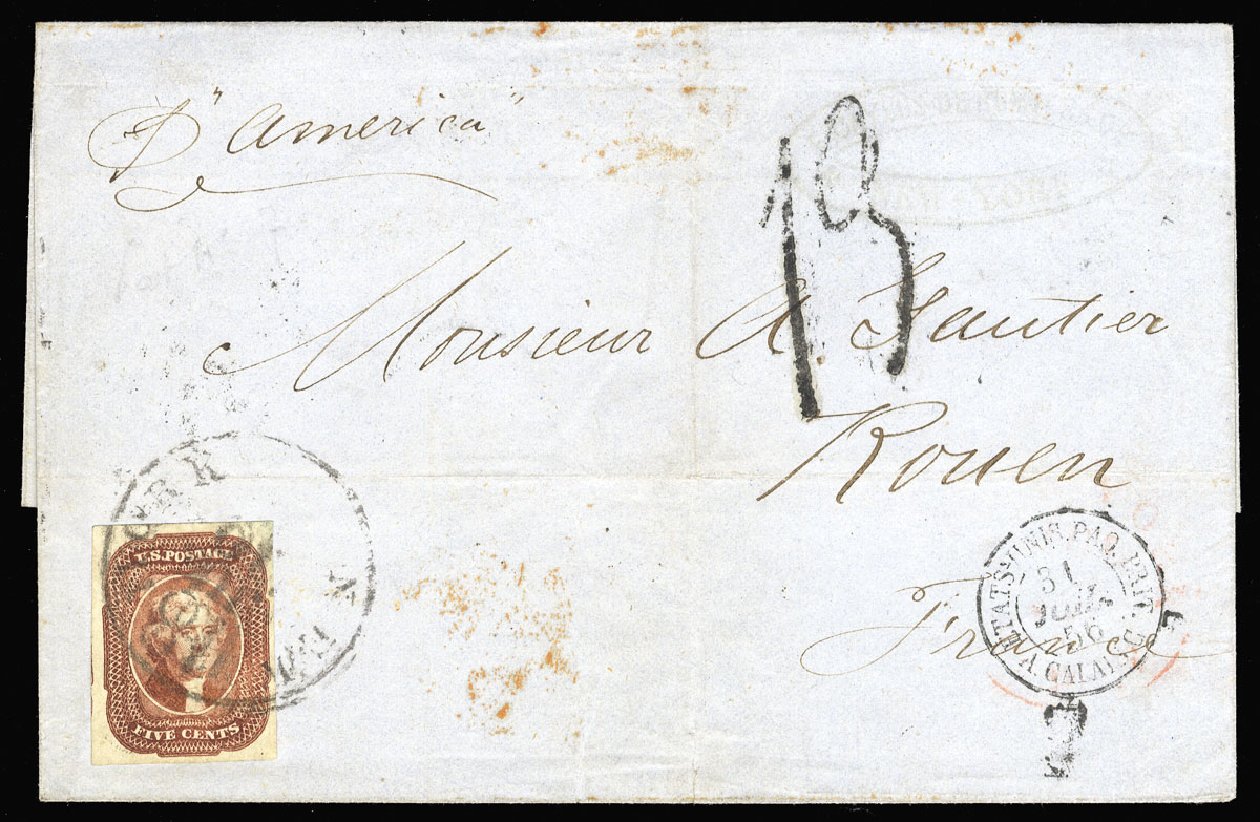 P "America"
13
Monsieur A. Gautier
Rouen
France
ORK
U.S. POSTAGE
FIVE CENTS
ETATS-UNIS. PAQ. BRIT.
31
JUIL.
56
A CALAIS